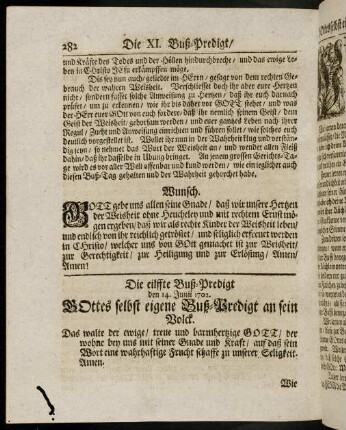 282 Die XI. Buß-Predigt/
und Kräfte des Todes und der Höllen hindurchbreche/ und das ewige Le-
ben in Christo JEsu erkämpffen möge.
Diß sey nun auch/ geliebte im HErrn/ gesagt von dem rechten Ge-
brauch der wahren Weisheit. Verschliesset doch ihr aber eure Hertzen
nicht/ sondern fasset solche Anweisung zu Hertzen/ daß ihr euch darnach
prüfet/ um zu erkennen/ wie ihr bis daher vor GOTT stehet/ und was
der HErr euer GOtt von euch fordert/ daß ihr nemlich seinem Geist/ dem
Geist der Weisheit/ gehorsam werden/ und euer gantzes Leben nach ihrer
Regul/ Zucht und Anweisung einrichten und führen sollet/ wie solches euch
deutlich vorgestellet ist. Wollet ihr nun in der Wahrheit klug und verstän-
dig seyn/ so nehmet das Wort der Weisheit an/ und wendet allen Fleiß
dahin/ daß ihr dasselbe in Übung bringet. An jenem grossen Gerichts-Ta-
ge wird es vor aller Welt offenbar und kund werden/ wie ein ieglicher auch
diesen Buß-Tag gehalten und der Wahrheit gehorchet habe.
Wunsch.
GOTT gebe uns allen seine Gnade/ daß wir unsere Hertzen
der Weisheit ohne Heucheley und mit rechtem Ernst mö-
gen ergeben/ daß wir als rechte Kinder der Weisheit leben/
und endlich von ihr reichlich getröstet/ und seliglich erfreuet werden
in CHristo/ welcher uns von GOtt gemachet ist zur Weisheit/
zur Gerechtigkeit/ zur Heiligung und zur Erlösung/ Amen/
Amen!
Die eilffte Buß-Predigt
den 14. Junii 1702.
GOttes selbst eigene Buß-Predigt an sein
Volck.
Das walte der ewige/ treue und barmhertzige GOTT/ der
wohne bey uns mit seiner Gnade und Kraft/ auf daß sein
Wort eine wahrhaftige Frucht schaffe zu unserer Seligkeit.
Amen.
Wie